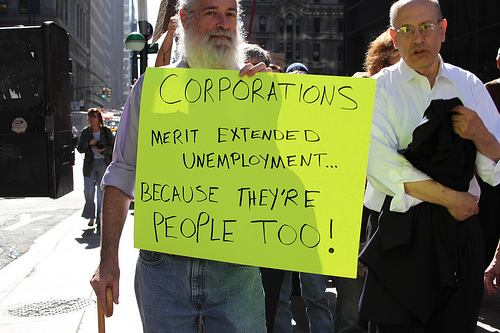 CORPORATIONS
MERIT EXTENDED
UNEMPLOYMENT...
BECAUSE THEY'RE
PEOPLE TOO!